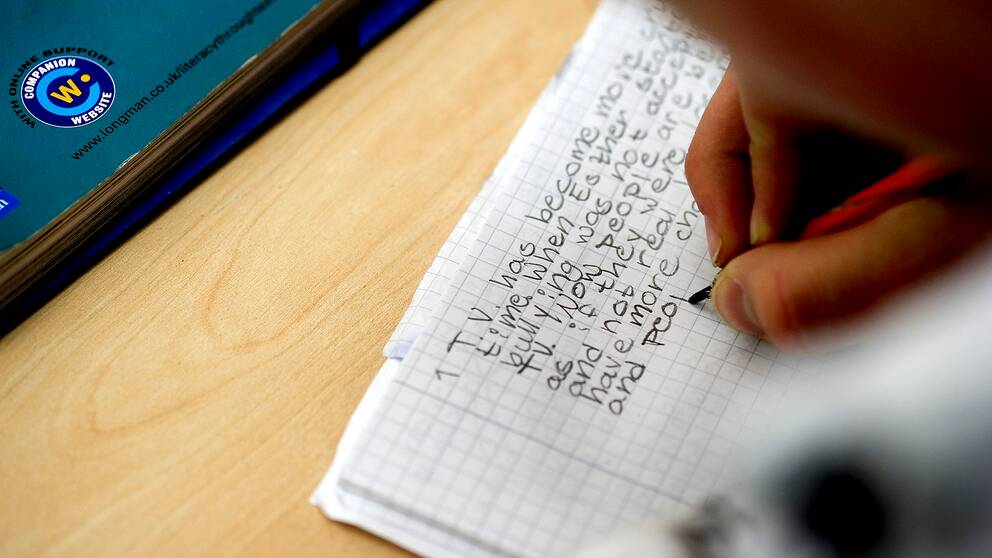 WITH ONLINE SUPPORT
COMPANION
W.
WEBSITE
www.longman.co.uk/literacythroughte
1 T.V. has become more
time. When Esther
bullying was not accep
TV. Now people are be
as if they were
and not real
have more cha
and peo